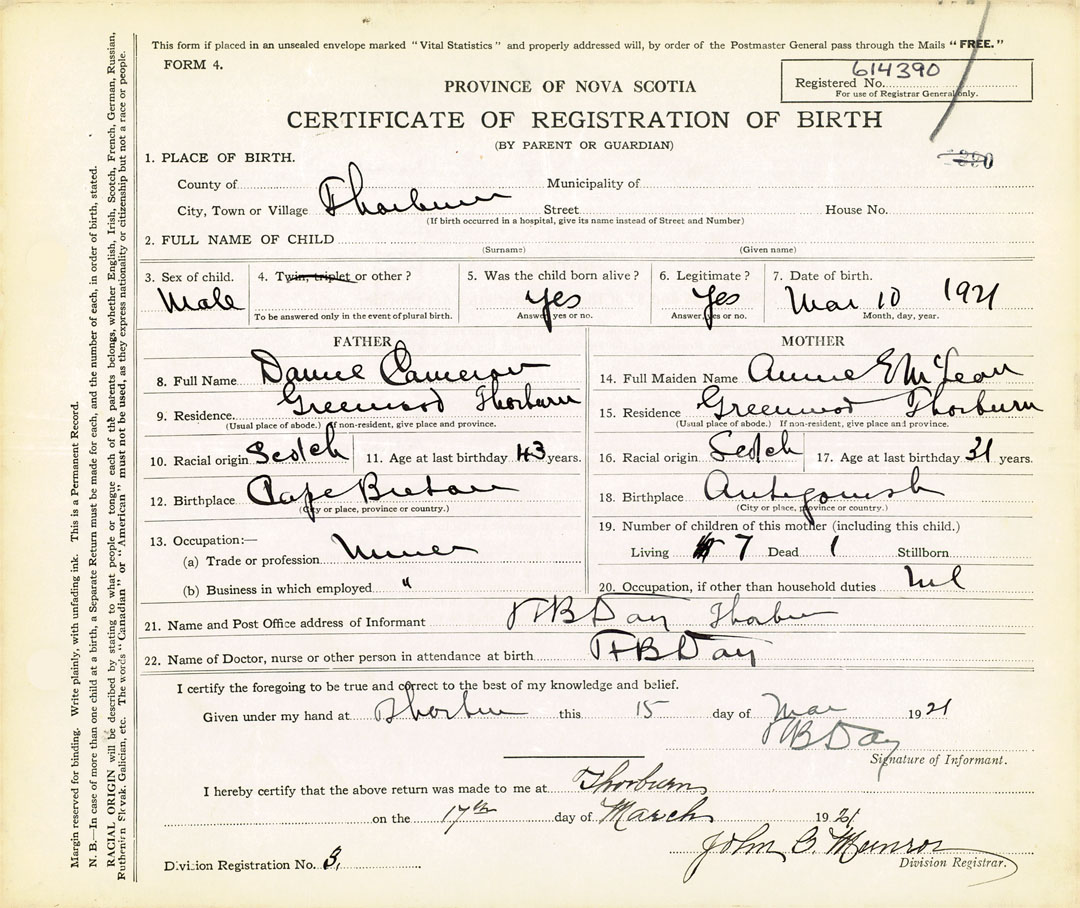 This form if placed in an unsealed envelope marked "Vital Statistics" and properly addressed will, by order of the Postmaster General pass through the Mails "FREE."
FORM 4.
614390
Registered No.
For use of Registrar General only.
PROVINCE OF NOVA SCOTIA
CERTIFICATE OF REGISTRATION OF BIRTH
(BY PARENT OR GUARDIAN)
1. PLACE OF BIRTH.
County of Municipality of
City, Town or Village Thorburn Street House No.
(If birth occurred in a hospital, give its name instead of Street and Number)
2. FULL NAME OF CHILD
(Surname) (Given name)
3. Sex of child. 4. Twin, triplet or other? 5. Was the child born alive? 6. Legitimate? 7. Date of birth.
Male yes Yes Mar 10 1921
To be answered only in the event of plural birth. Answer, yes or no. Answer, yes or no. Month, day, year.
FATHER
8. Full Name Cameron
9. Residence. Greenwood Thorburn
(Usual place of abode.) If non-resident, give place and province.
10. Racial origin Scotch 11. Age at last birthday 43 years.
12. Birthplace Cape Breton
(City or place, province or country.)
13. Occupation:—
(a) Trade or profession Miner
(b) Business in which employed "
MOTHER
14. Full Maiden Name Annie E McLean
15. Residence Greenwood Thorburn
(Usual place of abode.) If non-resident, give place and province.
16. Racial origin Scotch 17. Age at last birthday 31 years.
18. Birthplace Antigonish
(City or place, province or country.)
19. Number of children of this mother (including this child.)
Living 7 Dead 1 Stillborn
20. Occupation, if other than household duties Nil
21. Name and Post Office address of Informant B Day Thorburn
22. Name of Doctor, nurse or other person in attendance at birth B Day
I certify the foregoing to be true and correct to the best of my knowledge and belief.
Given under my hand at Thorburn this 15 day of Mar 1921
B Day
Signature of Informant.
I hereby certify that the above return was made to me at Thorburn
on the 17th day of March 1921
John B. Munro
Division Registration No. 3. Division Registrar.
Margin reserved for binding. Write plainly, with unfading ink. This is a Permanent Record.
N. B.—In case of more than one child at a birth, a Separate Return must be made for each, and the number of each, in order of birth, stated.
RACIAL ORIGIN will be described by stating to what people or tongue each of the parents belongs, whether English, Irish, Scotch, French, German, Russian,
Ruthenian, Slovak, Galician, etc. The words "Canadian" or "American" must not be used, as they express nationality or citizenship but not a race or people.